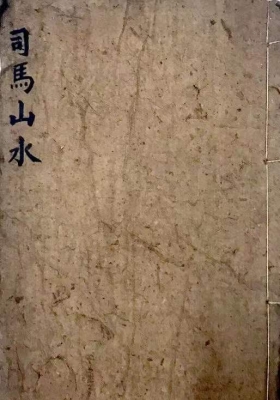 司馬山水